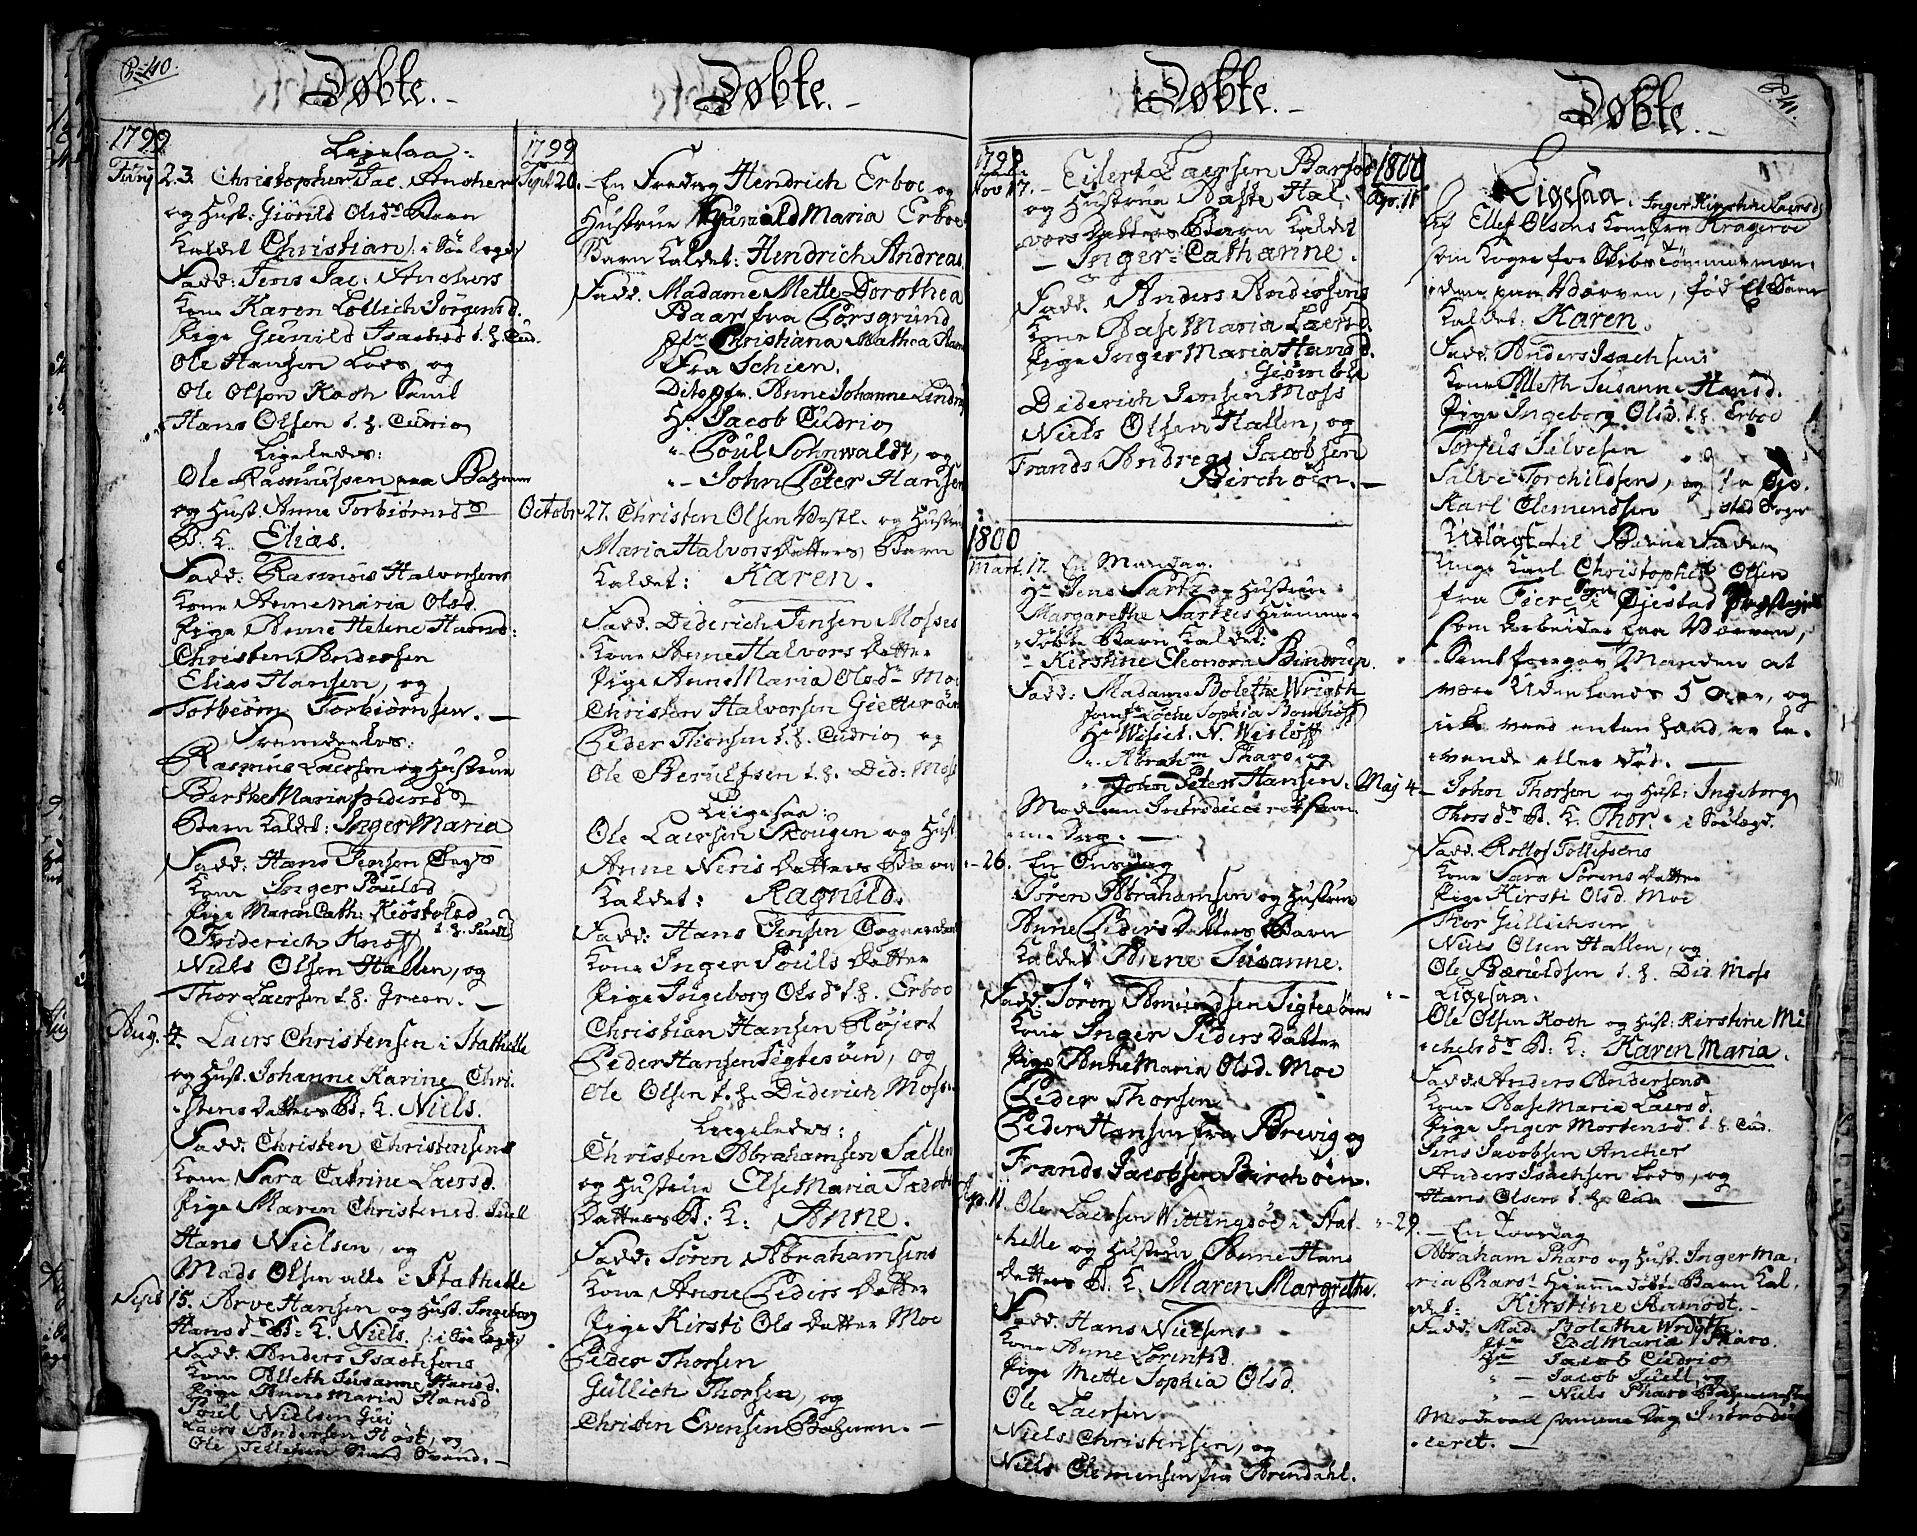 P. 40.
Døbte.
1799
Ligesaa:
Junij 23. Christopher Jac. Anchers
og Hust: Giønild Olsd. Barn
kaldet Christian
Fadd: Jens Jac: Anchers
Kone Karen Lollich Jørgensd.
Pige Gunild Isachsd t. h. Cud.
Ole Hansen Loes, og
Ole Olsen Koch Samt
Hans Olsen t. h. Cudrio
Ligeledes:
Ole Rasmussen paa
og Hust. Anne Torbiørensd
B. K. Elias.
Fadd: Rasmus Halvorsens
Kone Anne Maria Olsd.
Pige Anne Helene Hansd:
Christen Andersen
Elias Hansen, og
Torbiørn Torbiørnsen.
Fremdeles:
Rasmus Laersen og Hustrue
Berthe Maria Pedersd
Barn kaldet: Inger Maria
Fadd: Hans Jensen
Kone Inger Poulsd
Pige Maren Cath: Kiøstolsd
t. h. Juell
Friderich Knoff
Niels Olsen Hallen, og
Thor Laersen t. h. Green.
Aug. 4. Laers Christensen i Stathelle
og Hust. Johanne Karine Chri-
stens Datters B. K. Niels.
Fadd: Christen Christensens
Kone Sara Catrine Laersd.
Pige Maren Christensd. Juell
Hans Nielsen, og
Mads Olsen alle i Stathelle
15. Arve Hansen og Hust. Ingeborg
Hansd B: K. Niels.
Fadd. Anders Isachsens
Kone Alleth Susanne Hansd.
Pige Anne Maria Hansd
Poul Nielsen
Laers Andersen Høst, og
Ole Tellefsen
Døbte.
1799
Sept. 20. En Fredag Hendrich Erboe og
Hustrue Gunild Maria Erboe
Barn kaldet: Hendrich Andreas
Fadd. Madame Mette Dorothea
Baar fra Porsgrund
Jfr. Christiana Mathea
Fra Schien.
Dito Jfr. Anne Johanne
Hr. Jacob Cudrio
Poul Sohnwaldt, og
John Peter Hansen
Octobr 27. Christen Olsen og Hustrue
Maria Halvors Datters Barn
kaldet: Karen.
Fadd. Diderich Jensen Mosses
Kone Anne Halvors Datter
Pige Anne Maria Olsd. Moe
Christen Halvorsen Gietterøen
Peder Thorsen t. h. Cudrio og
Ole Berulfsen t. h. Did: Moss
Liigesaa:
Ole Laersen Skougen og Hust.
Anne Niris Datters Barn
kaldet: Ragnild.
Fadd: Hans Jensen
Kone Inger Pouls Datter
Pige Ingeborg Olsd. t. h. Erboe
Christian Hansen Røjert
Peder Hansen Sigtesøen, og
Ole Olsen t. h. Diderich Moss.
Liigeledes:
Christen Abrahamsen Sallen
og Hustrue Else Maria Jacobs
Datters B: K: Anne.
Fadd. Søren Abrahamsens
Kone Anne Peders Datter
Pige Kirsti Ols Datter Moe
Peder Thorsen
Gullich Thorsen, og
Christen Evensen
Døbte.
1799
Nov. 17. Eilert Laersen Barfod
og Hustrue Aaste Hal-
vors Datters Barn kaldet
Inger Cathrine.
Fadd. Anders Andersens
Kone Aase Maria Laersd.
Pige Inger Maria Hansd.
Diderich Jensen Moss
Niels Olsen Hallen, og
Frands Andreas Jacobsen
Birchøen.
1800
Mart. 17. En Mandag.
Hr. Jens Sartz og Hustrue
Margarethe Sartzes Hiemme-
døbte Barn kaldet:
Kirstine Eleonora Bindrup.
Fadd: Madame Bolethe Wrigth
Sophia
Hr. N. Wisloff
Abrahm Pharo, og
John Peter Hansen.
Moderen Introduceret samme
Dag.
26. En Onsdag
Søren Abrahamsen og Hustrue
Anne Peders Datters Barn
kaldet Anne Susanne.
Fadd. Søren Amundsen Sigtesøens
Kone Inger Peders Datter
Pige Anne Maria Olsd. Moe
Peder Thorsen
Peder Hansen fra Brevig og
Frands Jacobsen Birchøen.
Apr. 11. Ole Laersen Wittingsøe i Stat-
helle og Hustrue Anne Hans
Datters B. K. Maren Margrethe.
Fadd. Hans Nielsens
Kone Anne Lorentsd.
Pige Mette Sophia Olsd.
Ole Laersen
Niels Christensen, og
Niels Clemensen fra Arendahl.
P. 41.
Døbte.
1800
Apr. 11
Ligesaa. Inger Kirstine Laersd.
Ellef Olsens Kone fra Krageroe
som Koger for Skibs Tømmermæn-
dene paa Værven, fød Et Barn
kaldet: Karen.
Fadd: Anders Isachsens
Kone Alleth Susanne Hansd.
Pige Ingeborg Olsd. t. h. Erboe
Torjels Silvesen
Salve Torchildsen, og
Karl Clemendsen
Udlagt til Barne Fader
Unge Karl Christopher Olsen
fra Øiestad
som Arbeider paa Værven,
Samt foregav Manden at
være Udenlands 5 Aar, og
ikke veed enten hand er le-
vende eller død.
Maj 4. John Thorsen og Hust: Ingeborg
Thorsd. B. K. Thor.
Fadd. Rollof Tollefsens
Kone Sara Sørens Datter
Pige Kirsti Olsd. Moe
Thor Gullichsen
Niels Olsen Hallen, og
Ole Bæruldsen t. h. Did. Moss
Ligesaa.
Ole Olsen Koch og Hust: Kirstine Mi-
chelsd. B: K: Karen Maria.
Fadd: Anders Andersens
Kone Aase Maria Laersd.
Pige Inger Mortensd t. h. Cud.
Jens Jacobsen Ancher
Anders Isachsen Loes, og
Hans Olsen t. h. Cud.
29. En Torsdag
Abraham Pharo og Hust. Inger Ma-
ria Pharos Hiemme døbte Barn Kal-
det: Kirstine Aamodt.
Fadd. Mad. Bolethe Wrigth
Jfr. Edel Maria Pharo
Hr. Jacob Cudrio
Jacob Juell, og
Niels Pharo
Moderen samme Dag Introdu-
ceret.